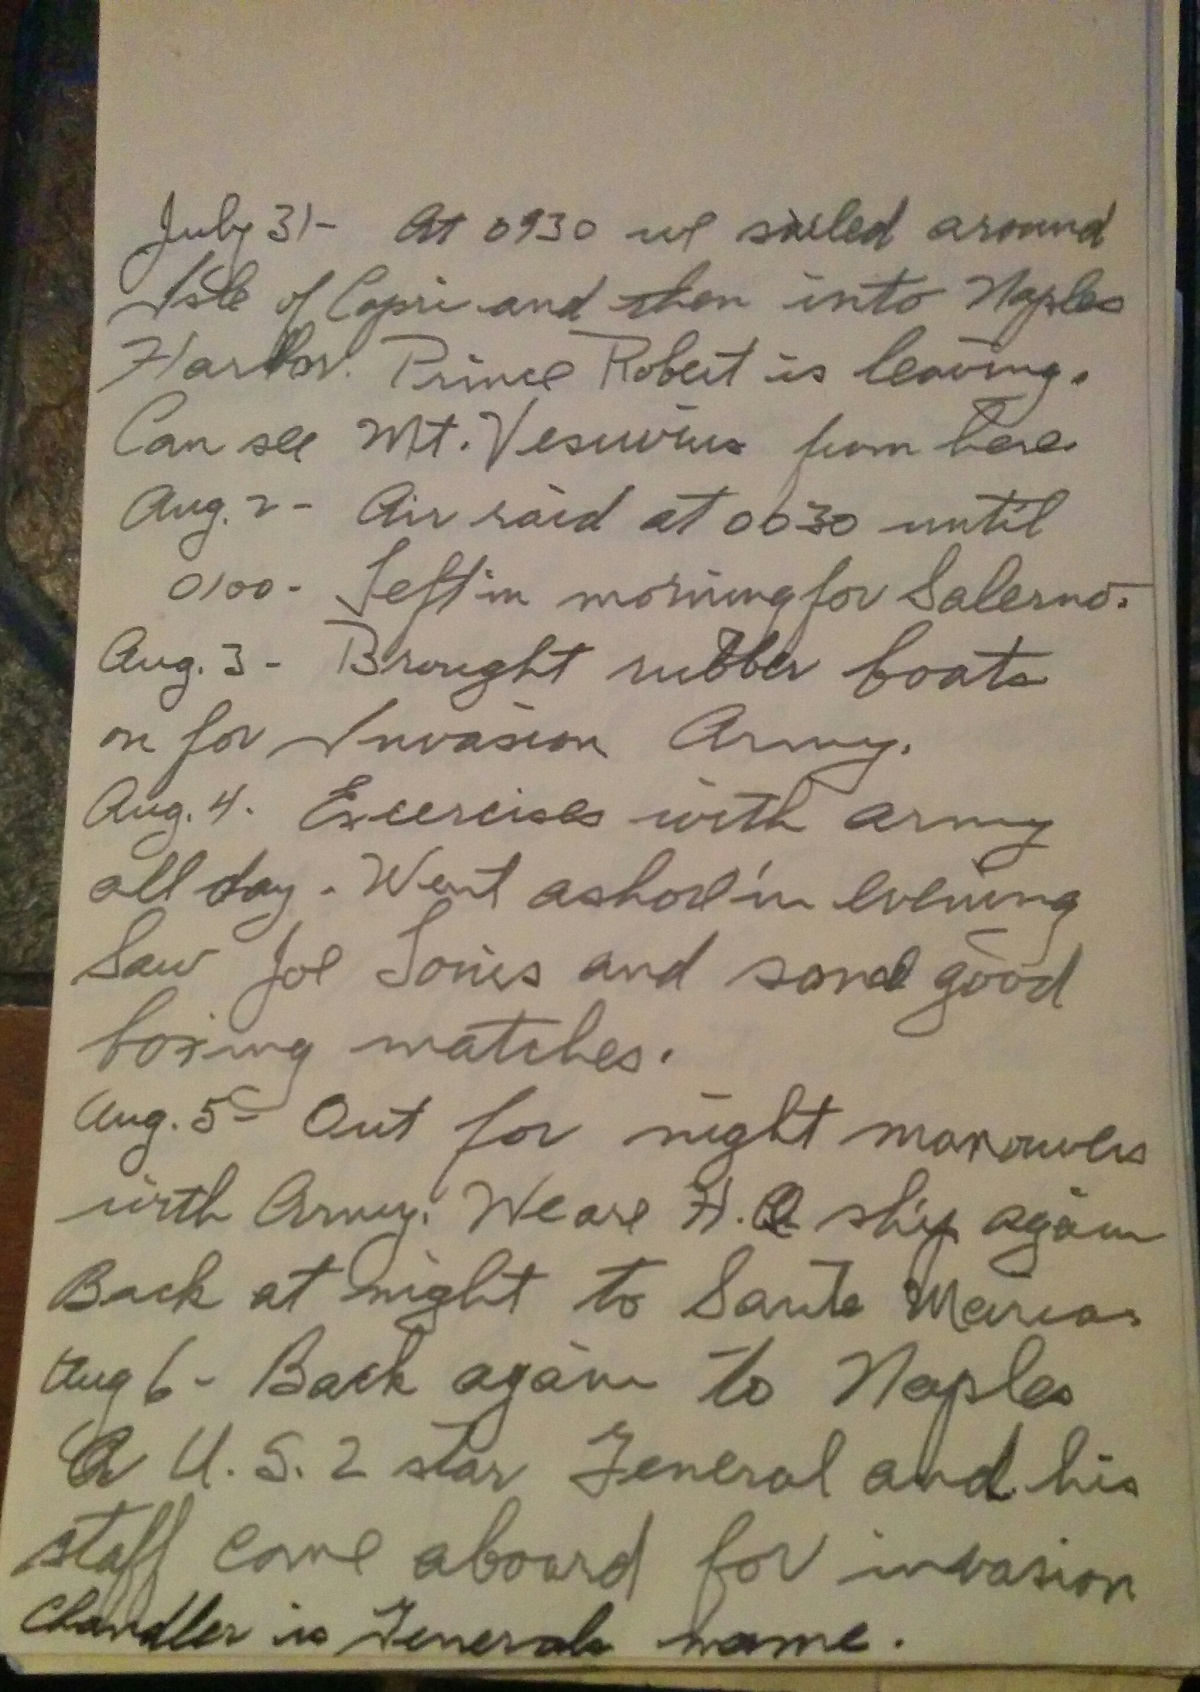 July 31- At 0930 we sailed around
Isle of Capri and then into Naples
Harbor. Prince Robert is leaving.
Can see Mt. Vesuvius from here
Aug. 2- Air raid at 0030 until
0100- Left in morning for Salerno.
Aug. 3- Brought rubber boats
on for Invasion Army.
Aug. 4. Exercises with army
all day. Went ashore in evening
Saw Joe Louis and some good
boxing matches.
Aug. 5- Out for night manouvers
with Army. We are H.Q ship again
Back at night to Santa Marias
Aug 6- Back again to Naples
A U.S. 2 star General and his
staff come aboard for invasion
Chandler is Generals name.